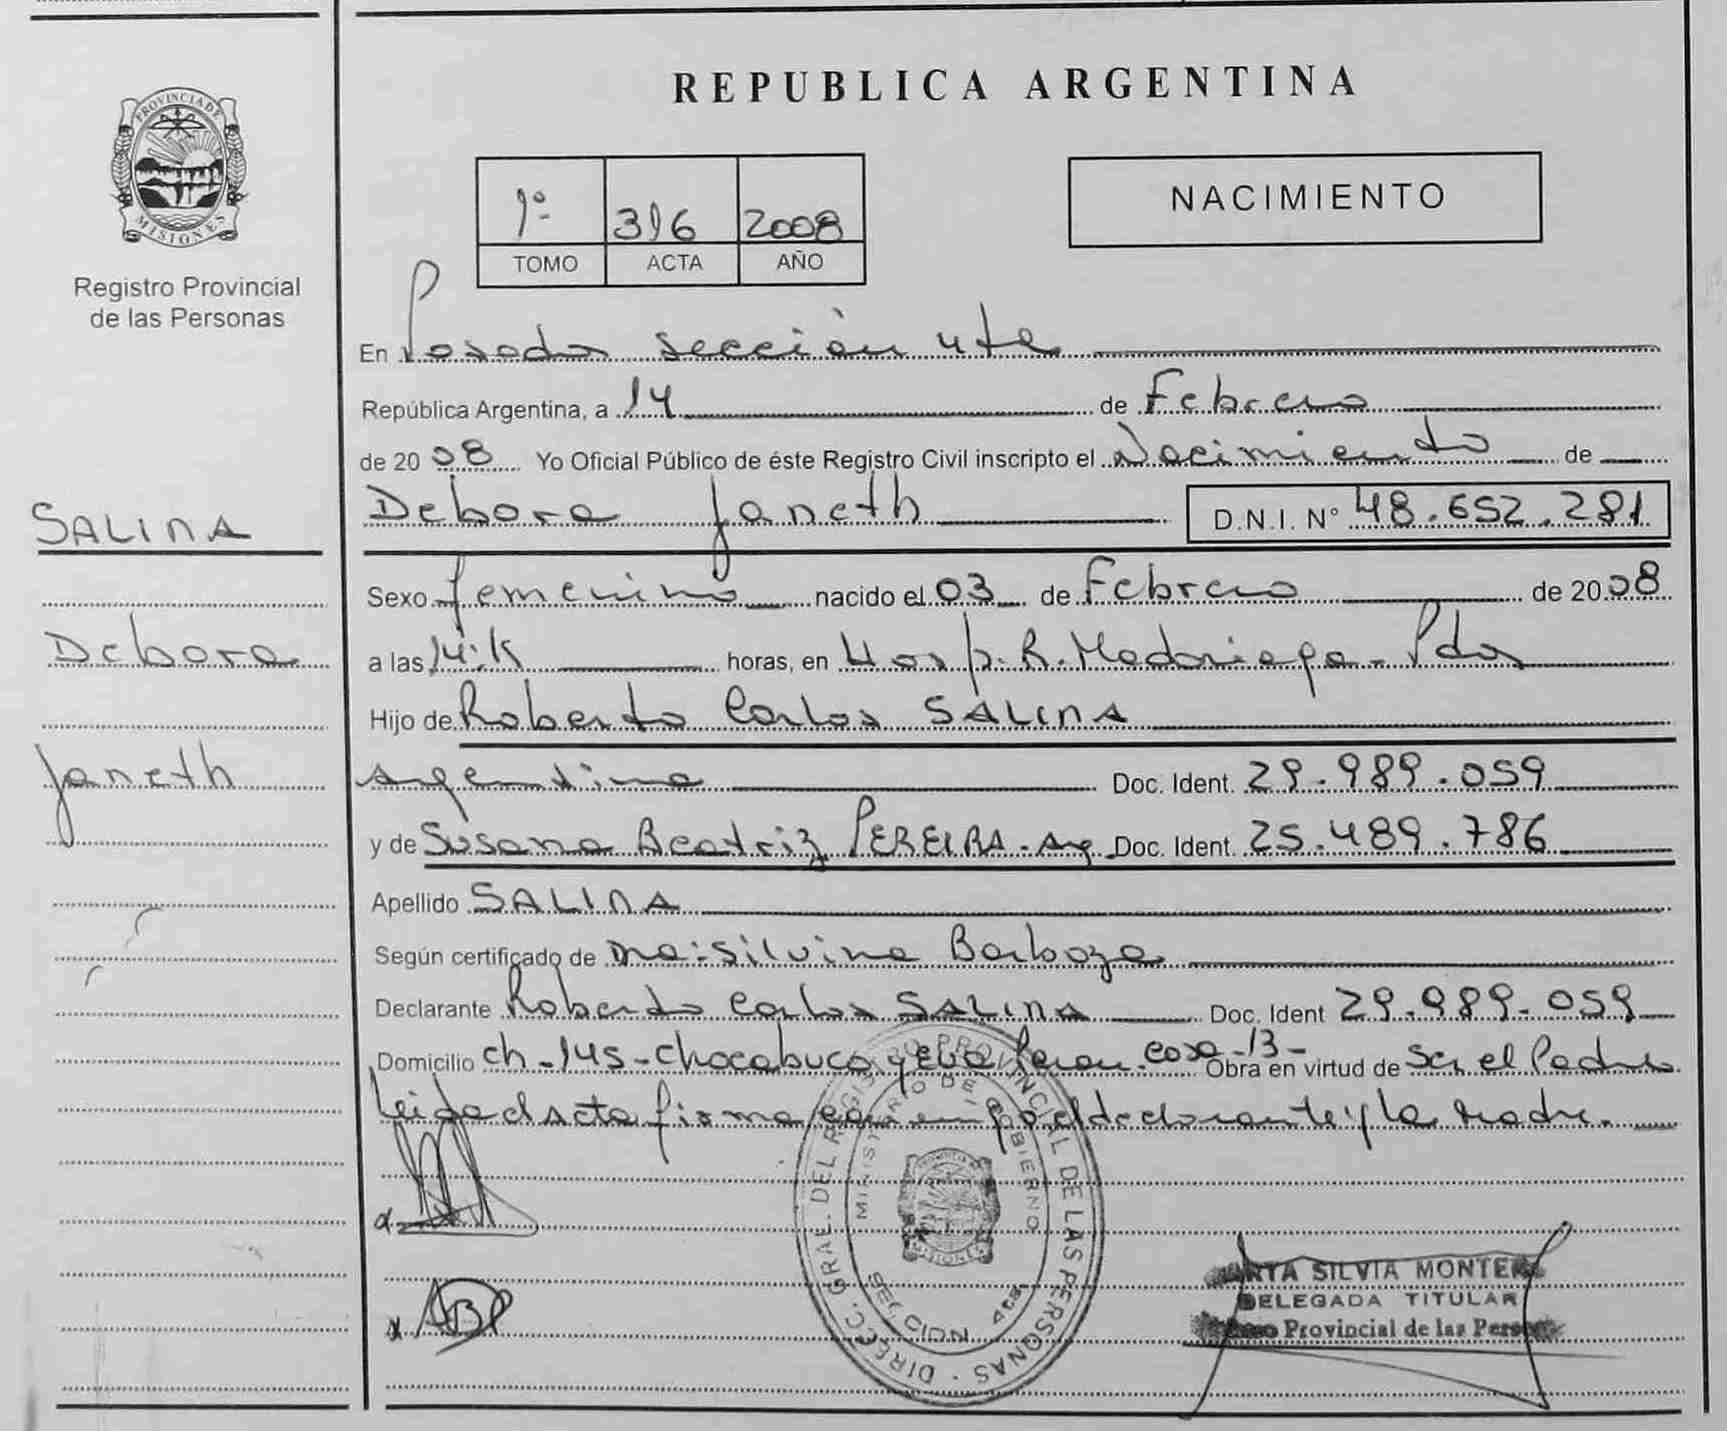 PROVINCIA DE
MISIONES
Registro Provincial
de las Personas
SALINA
Debora
Janeth
REPUBLICA ARGENTINA
1º 316 2008
TOMO ACTA AÑO
NACIMIENTO
En Posadas sección 4ta
República Argentina, a 14 de Febrero
de 2008 Yo Oficial Público de éste Registro Civil inscripto el Nacimiento de
Debora Janeth D.N.I. Nº 48.652.281
Sexo femenino nacido el 03 de Febrero de 2008
a las horas, en Hosp. R. Madariaga - Pdas
Hijo de Roberto Carlos SALINA
Argentino Doc. Ident. 29.989.059
y de Susana Beatriz PEREIRA - Arg. Doc. Ident. 25.489.786
Apellido SALINA
Según certificado de Ma: Silvina Barboza
Declarante Roberto Carlos SALINA Doc. Ident 29.989.059
Domicilio ch - 145 - Chacabuco y Eva Peron. casa - 13 - Obra en virtud de Ser el Padre
leida el acta firma con el declarante y la madre.
DIRECC. GRAL. DEL REGISTRO PROVINCIAL DE LAS PERSONAS
MINISTERIO DE GOBIERNO
SECCION 4ta
MISIONES
SILVIA
DELEGADA TITULAR
Provincial de las